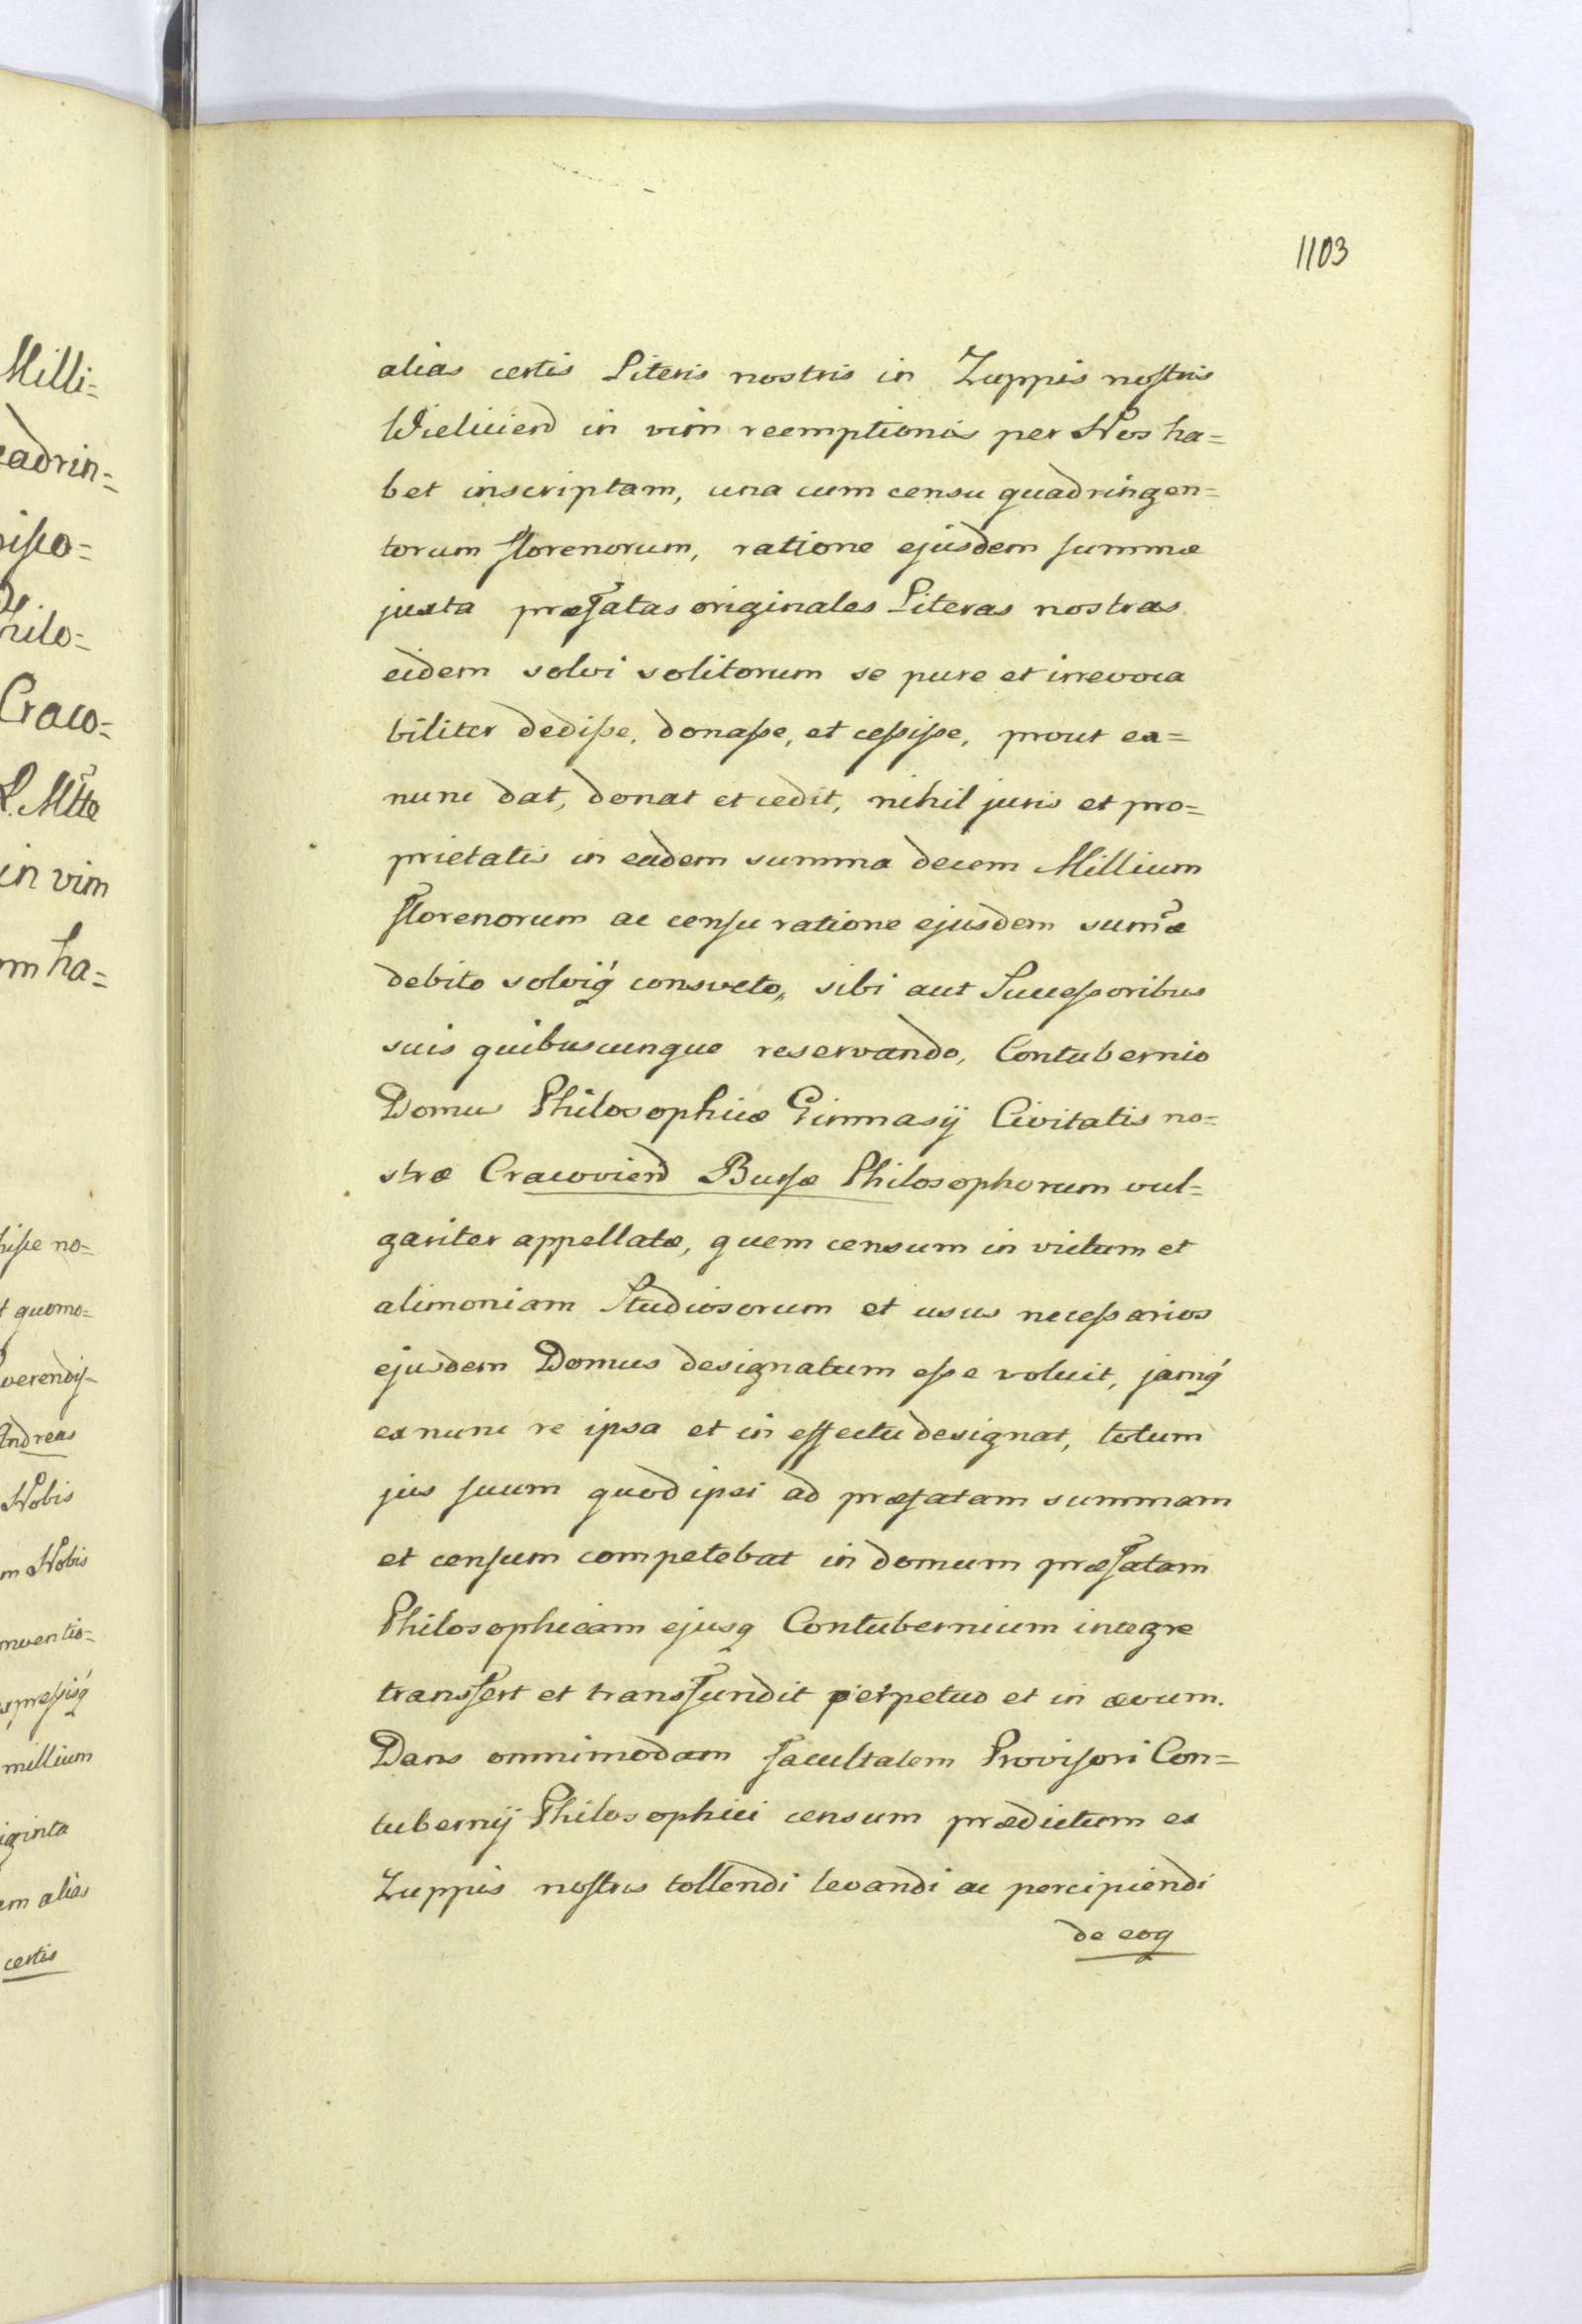 1103
alias certis Literis nostris in Zuppis nostris
Wieliciens in vim reemptionis per Nos ha=
bet inscriptam, una cum censu quadringen=
torum florenorum, ratione ejusdem summæ
juxta præfatas originales Literas nostras
eidem solvi solitorum se pure et irrevoca
biliter dedisse, donasse, et cessisse, prout ex=
nunc dat, donat et cedit, nihil juris et pro=
prietatis in eadem summa decem Millium
florenorum ac censu ratione ejusdem sum̃æ
debito solviq́ consveto, sibi aut Successoribus
suis quibuscunque reservando, Contubernio
Domus Philosophicæ Gimnasij Civitatis no=
stræ Cracoviens Bursæ Philosophorum vul=
gariter appellatæ, quem censum in victum et
alimoniam Studiosorum et usus necessarios
ejusdem Domus designatum esse voluit, jamq́
ex nunc re ipsa et in effectu designat, totum
jus suum quod ipsi ad præfatam summam
et censum competebat in domum præfatam
Philosophicam ejusq Contubernium integre
transfert et transfundit perpetuo et in ævum.
Dans omnimodam facultatem Provisori Con=
tubernij Philosophici censum prædictum ex
Zuppis nostris tollendi levandi ac percipiendi
de eoq
Milli=
eadrin=
hilo=
Craco=
R. Mtte
in vim
m ha=
no=
t quomo=
verendis=
Andreas
Nobis
m Nobis
nventio=
xpressisq́
millium
iginta
em alias
certis